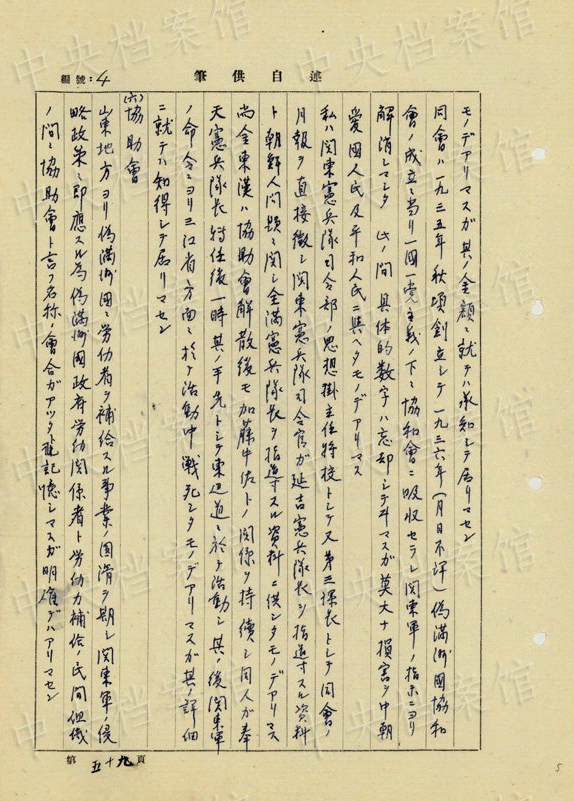 述自供筆
編號：4
モノデアリマスガ其ノ金額ニ就テハ承知シテ居リマセン
同會ハ一九三五年秋頃創立シテ一九三六年（月日不詳）偽満洲國協和
會ノ成立ニ当リ一國一党主義ノ下ニ協和會ニ吸収セラレ関東軍ノ指示ニヨリ
解消シマシタ 此ノ間具体的数字ハ忘却シテヰマスガ莫大ナ損害ヲ中朝
愛國人民及平和人民ニ與ヘタモノデアリマス
私ハ関東憲兵隊司令部ノ思想掛主任将校トシテ又第三課長トシテ同會ノ
月報ヲ直接徴シ関東憲兵隊司令官ガ延吉憲兵隊長ヲ指導スル資料
ト朝鮮人問題ニ関シ全満憲兵隊長ヲ指導スル資料ニ供シタモノデアリマス
尚金東漢ハ協助會解散後モ加藤中佐トノ関係ヲ持続シ同人ガ奉
天憲兵隊長転任後一時其ノ手先トシテ東辺道ニ於テ活動シ其ノ後関東軍
ノ命令ニヨリ三江省方面ニ於テ活動中戦死シタモノデアリマスガ其ノ詳細
ニ就テハ知得シテ居リマセン
(六)協助會
山東地方ヨリ偽満洲國ニ労仂者ヲ補給スル事業ノ圓滑ヲ期シ関東軍ノ侵
略政策ニ即應スル為偽満洲國政府労仂関係者ト労仂力補給ノ民間組織
ノ間ニ協助會ト言フ名称ノ會合ガアツタト記憶シマスガ明確デハアリマセン
第五十九頁
5
中央档案馆
中央档案馆
中央档案馆
中央档案馆